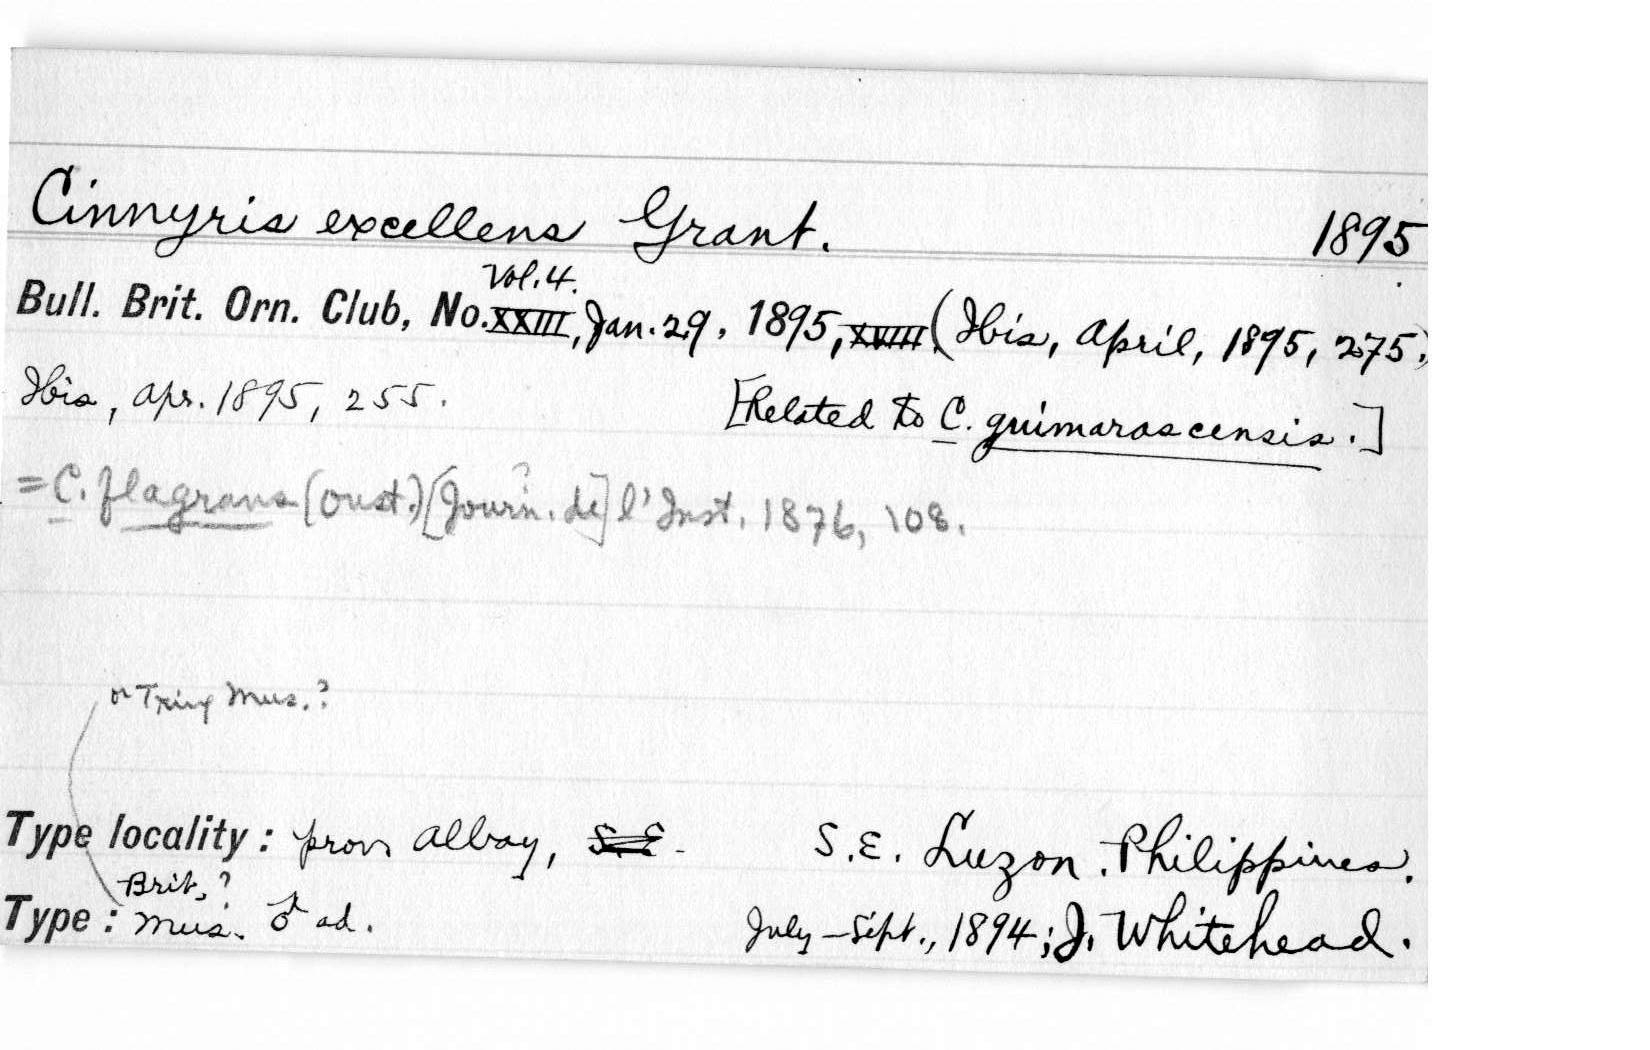 Cinnyris excellens Grant. 1895
Vol. 4.
Bull. Brit. Orn. Club, No. XXIII, Jan. 29, 1895, XVIII (Ibis, April, 1895, 275.)
Ibis, Apr. 1895, 255. [Related to C. guimarascensis.]
?
= C. flagrans (Oust.) [Journ. de] l'Inst. 1876, 108.
or Tring Mus.?
Type locality: prov Albay, S.E. S.E. Luzon, Philippines.
Brit.?
Type: Mus. ♂ ad. July-Sept., 1894; J. Whitehead.